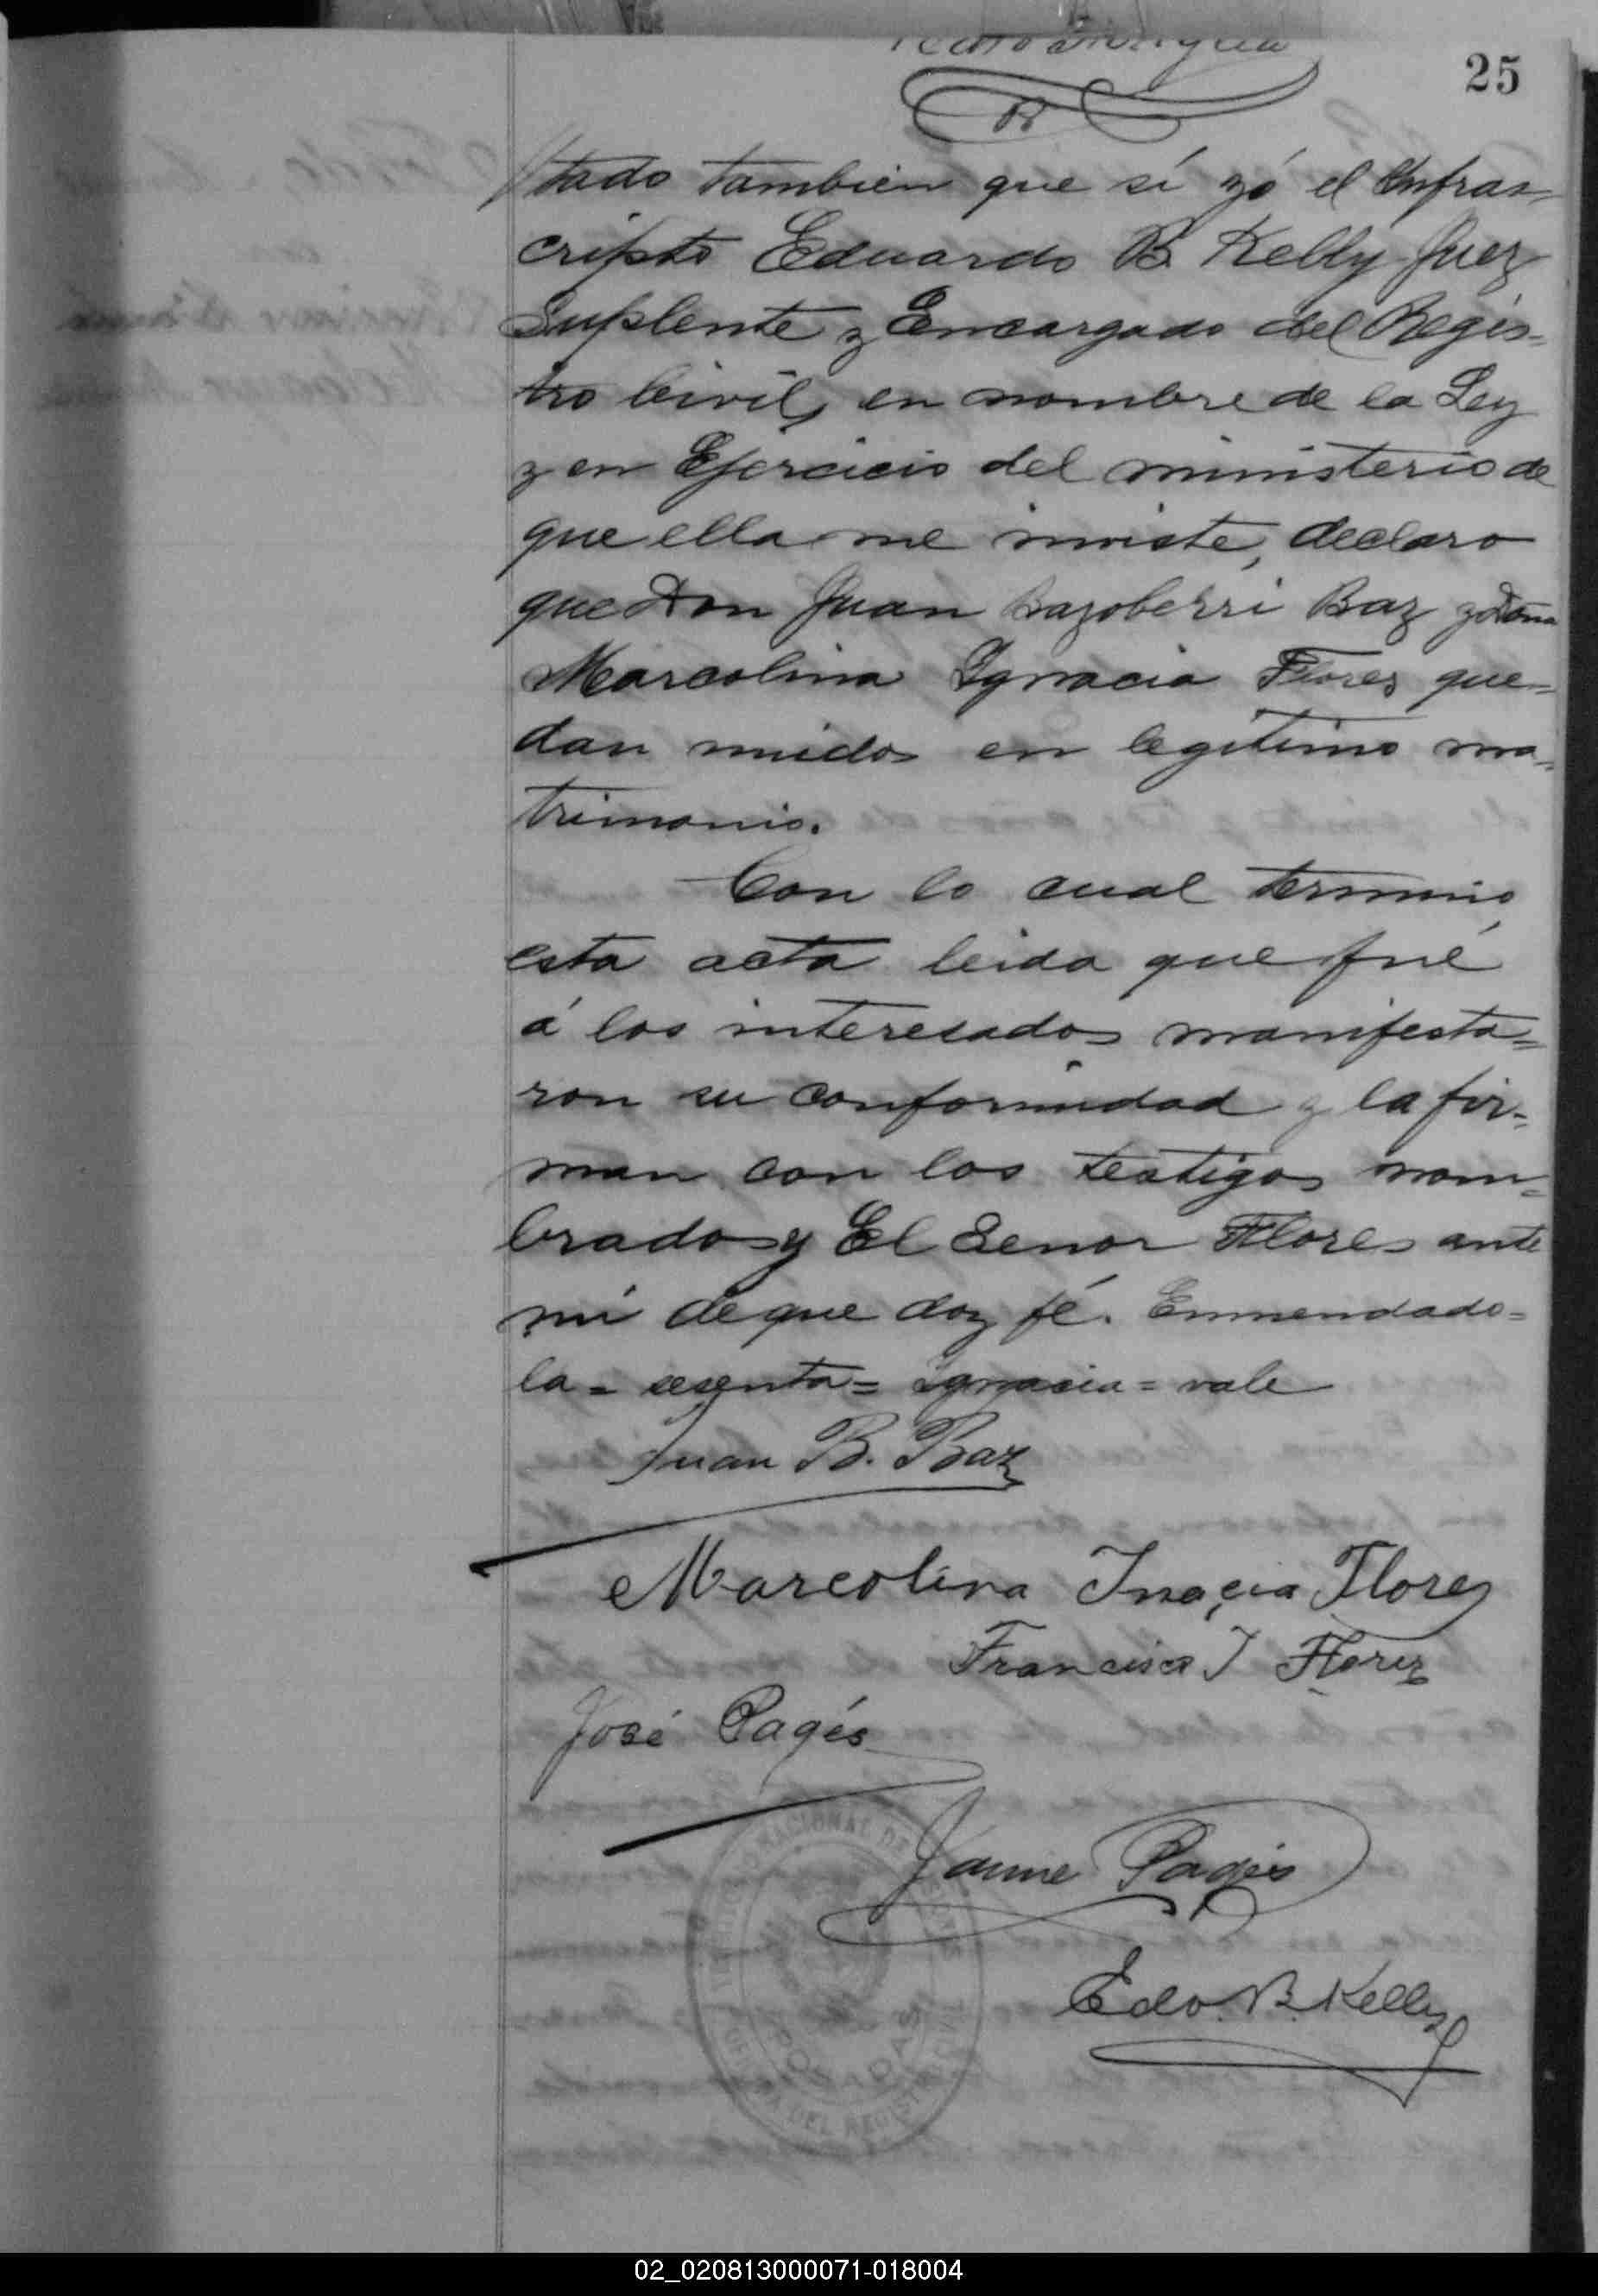 25
tado tambien que sí yó el Infras-
cripto Eduardo B. Kelly Juez
Suplente y Encargado del Regis=
tro Civil, en nombre de la Ley
y en Ejercicio del ministerio de
que ella me inviste, declaro
que Don Juan Bazoberri Baz y Doña
Marcolina Ignacia Flores que=
dan unidos en legítimo ma=
trimonio.
Con lo cual termino
esta acta leida que fué
á los interesados manifesta=
ron su conformidad y la fir=
man con los testigos nom=
brados y El Senor Flores ante
mi de que doy fé. Enmendado=
la = sesenta = ignacia = vale
Juan B. Baz
Marcolina Inaçia Flores
Francisca I Flores
José Pagés
Jaime Pagés
Edo. B. Kelly
NACIONAL DE
POSADAS
DEL REGISTRO
02_020813000071-018004